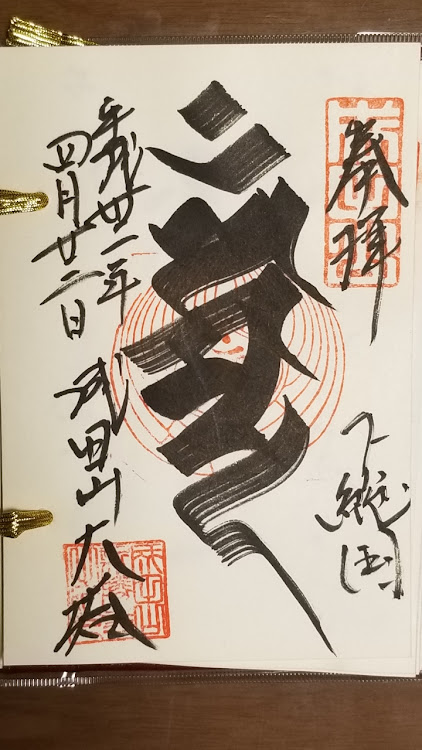 奉拝
下総国
平成卅一年
四月廿二日
成田山大塔